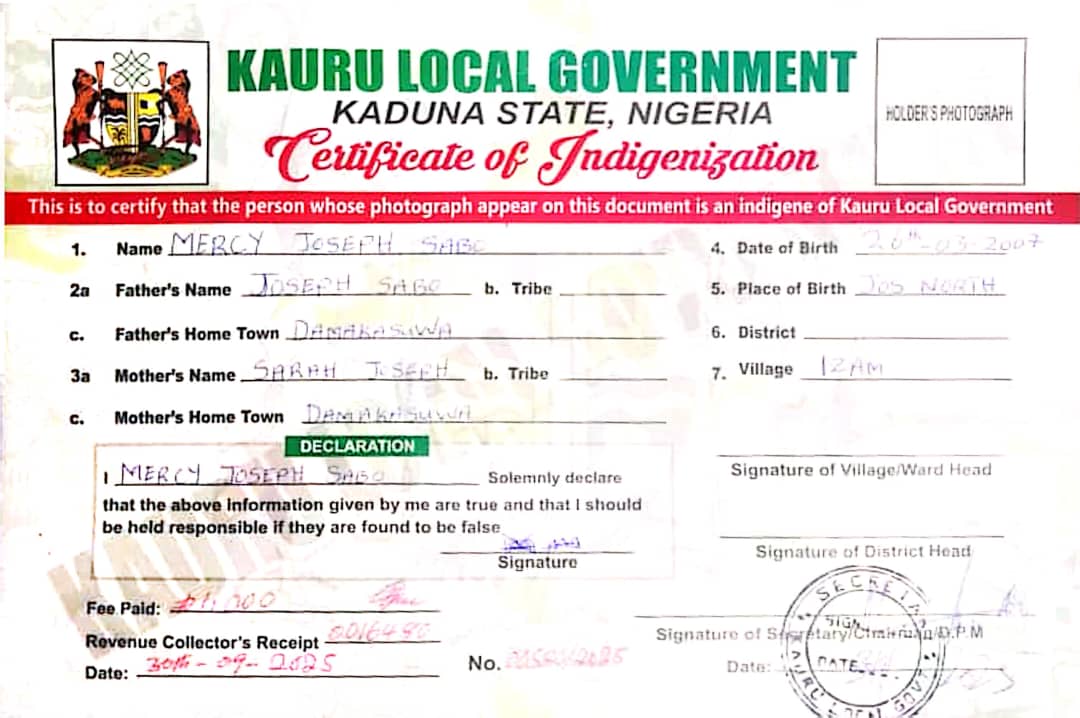 KAURU LOCAL GOVERNMENT
KADUNA STATE, NIGERIA
Certificate of Indigenization
HOLDER'S PHOTOGRAPH
This is to certify that the person whose photograph appear on this document is an indigene of Kauru Local Government
1. Name MERCY JOSEPH SABO
4. Date of Birth 20th-03-2007
2a Father's Name JOSEPH SABO b. Tribe
5. Place of Birth JOS NORTH
c. Father's Home Town DAMAKASUWA
6. District
3a Mother's Name SARAH JOSEPH b. Tribe
7. Village IZAM
c. Mother's Home Town DAMAKASUWA
DECLARATION
I MERCY JOSEPH SABO Solemnly declare
that the above information given by me are true and that I should
be held responsible if they are found to be false
Signature
Signature of Village/Ward Head
Signature of District Head
Fee Paid:
Revenue Collector's Receipt
Date: 30th-09-2025
No.
Signature of Secretary/Chairman/D.P.M
Date:
SIGN
DATE